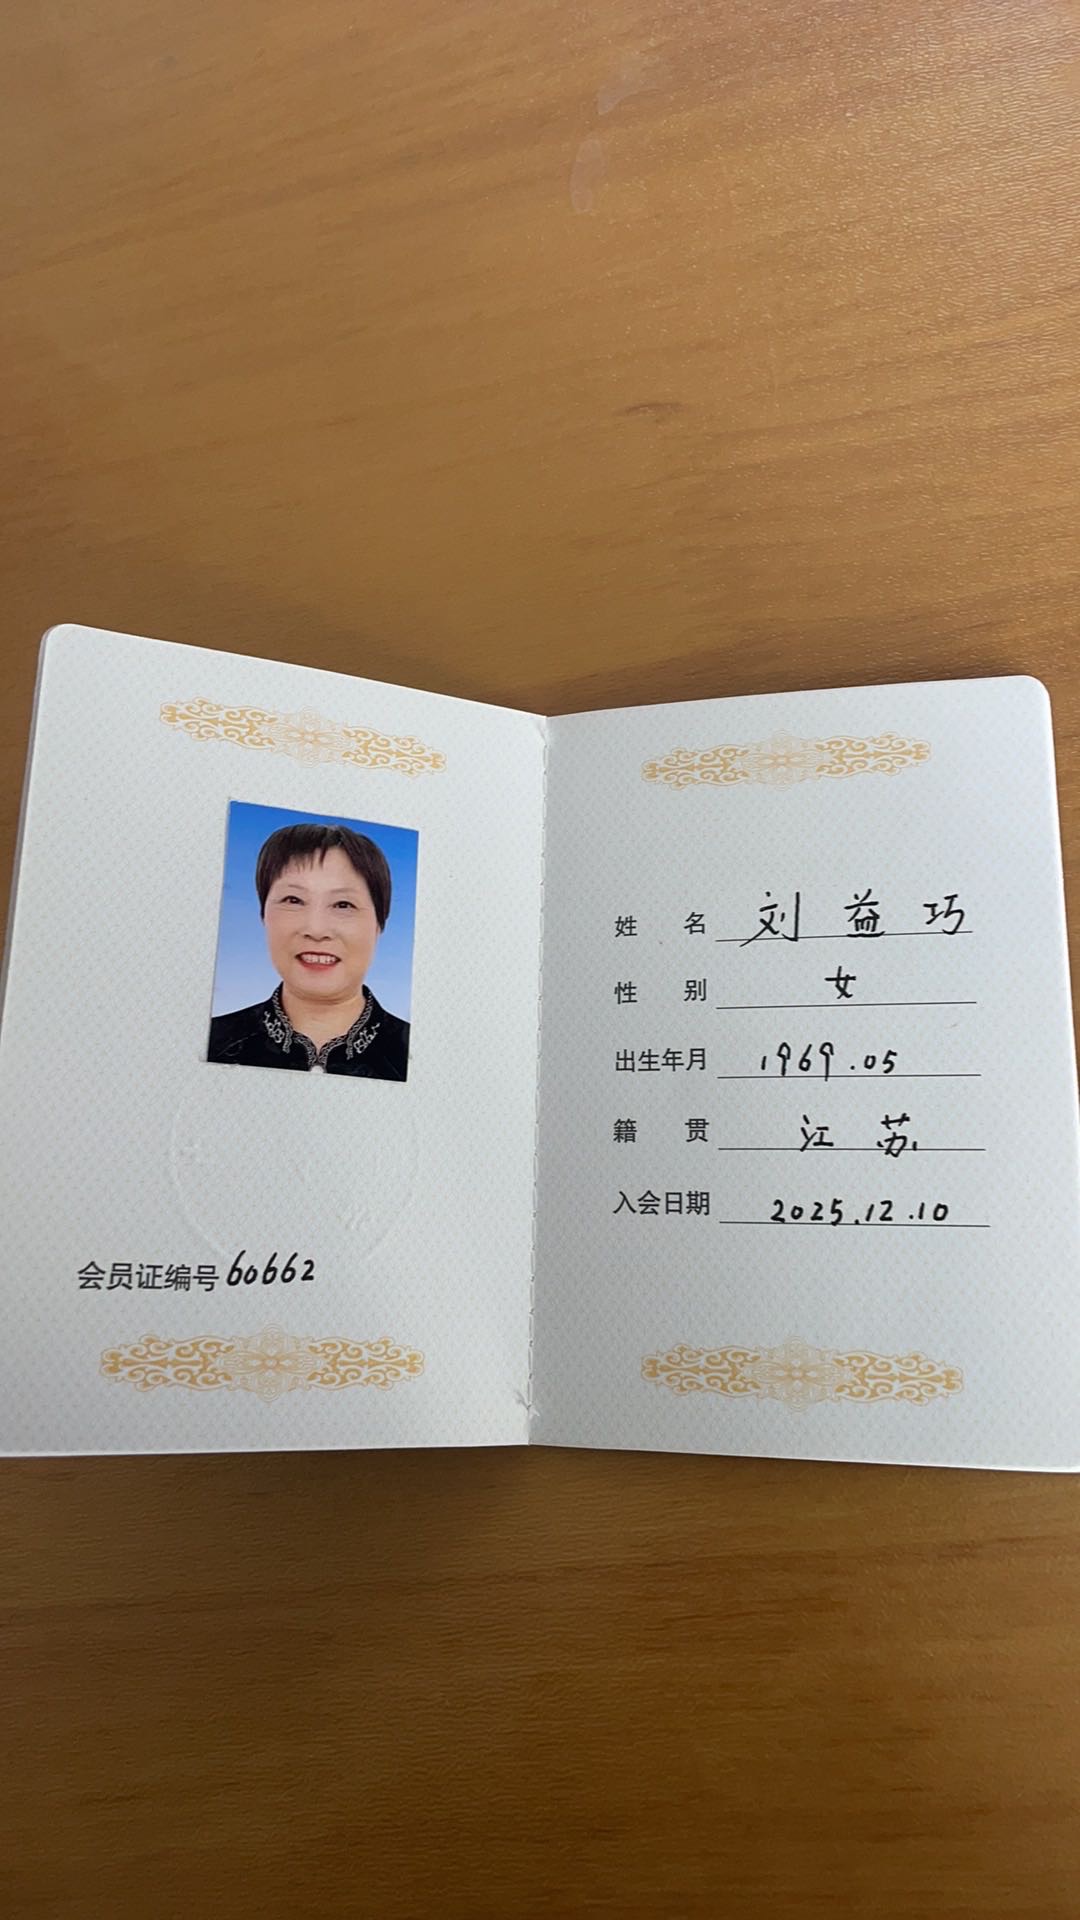 会员证编号 60662
姓名 刘益巧
性别 女
出生年月 1969.05
籍贯 江苏
入会日期 2025.12.10